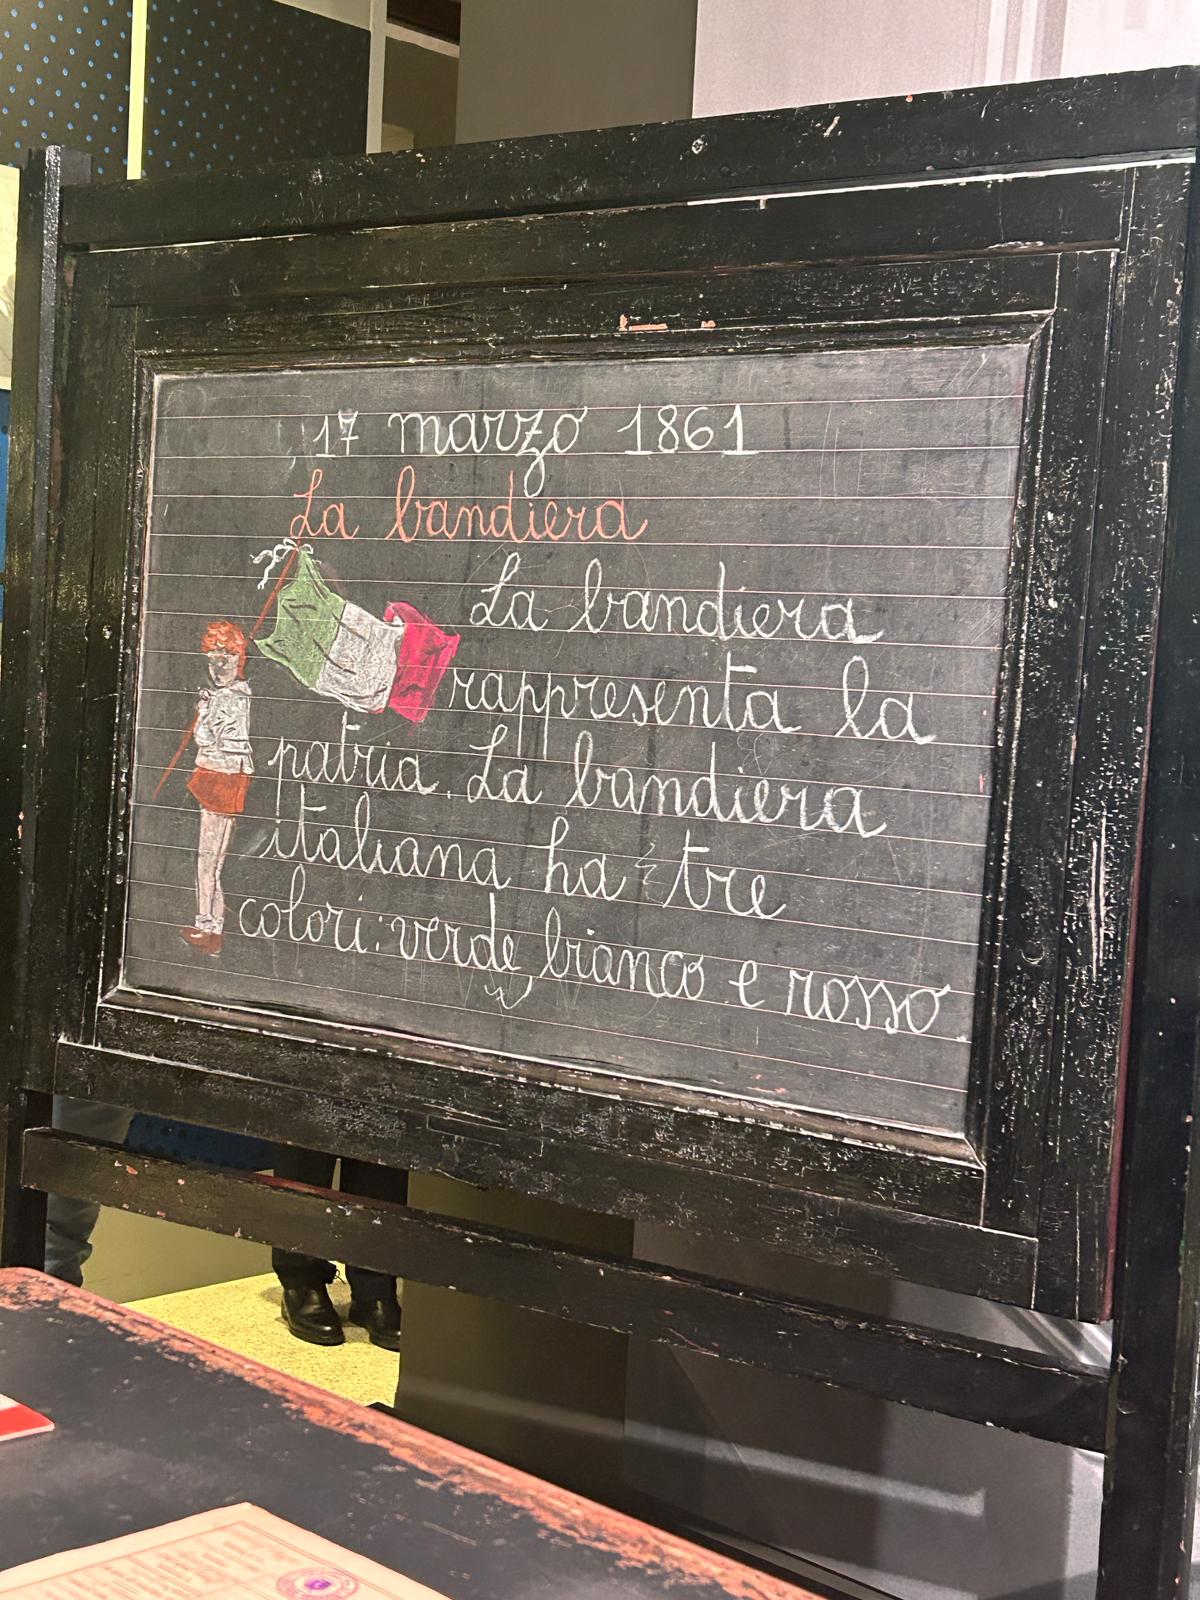 17 marzo 1861
La bandiera
La bandiera
rappresenta la
patria. La bandiera
italiana ha tre
colori: verde bianco e rosso